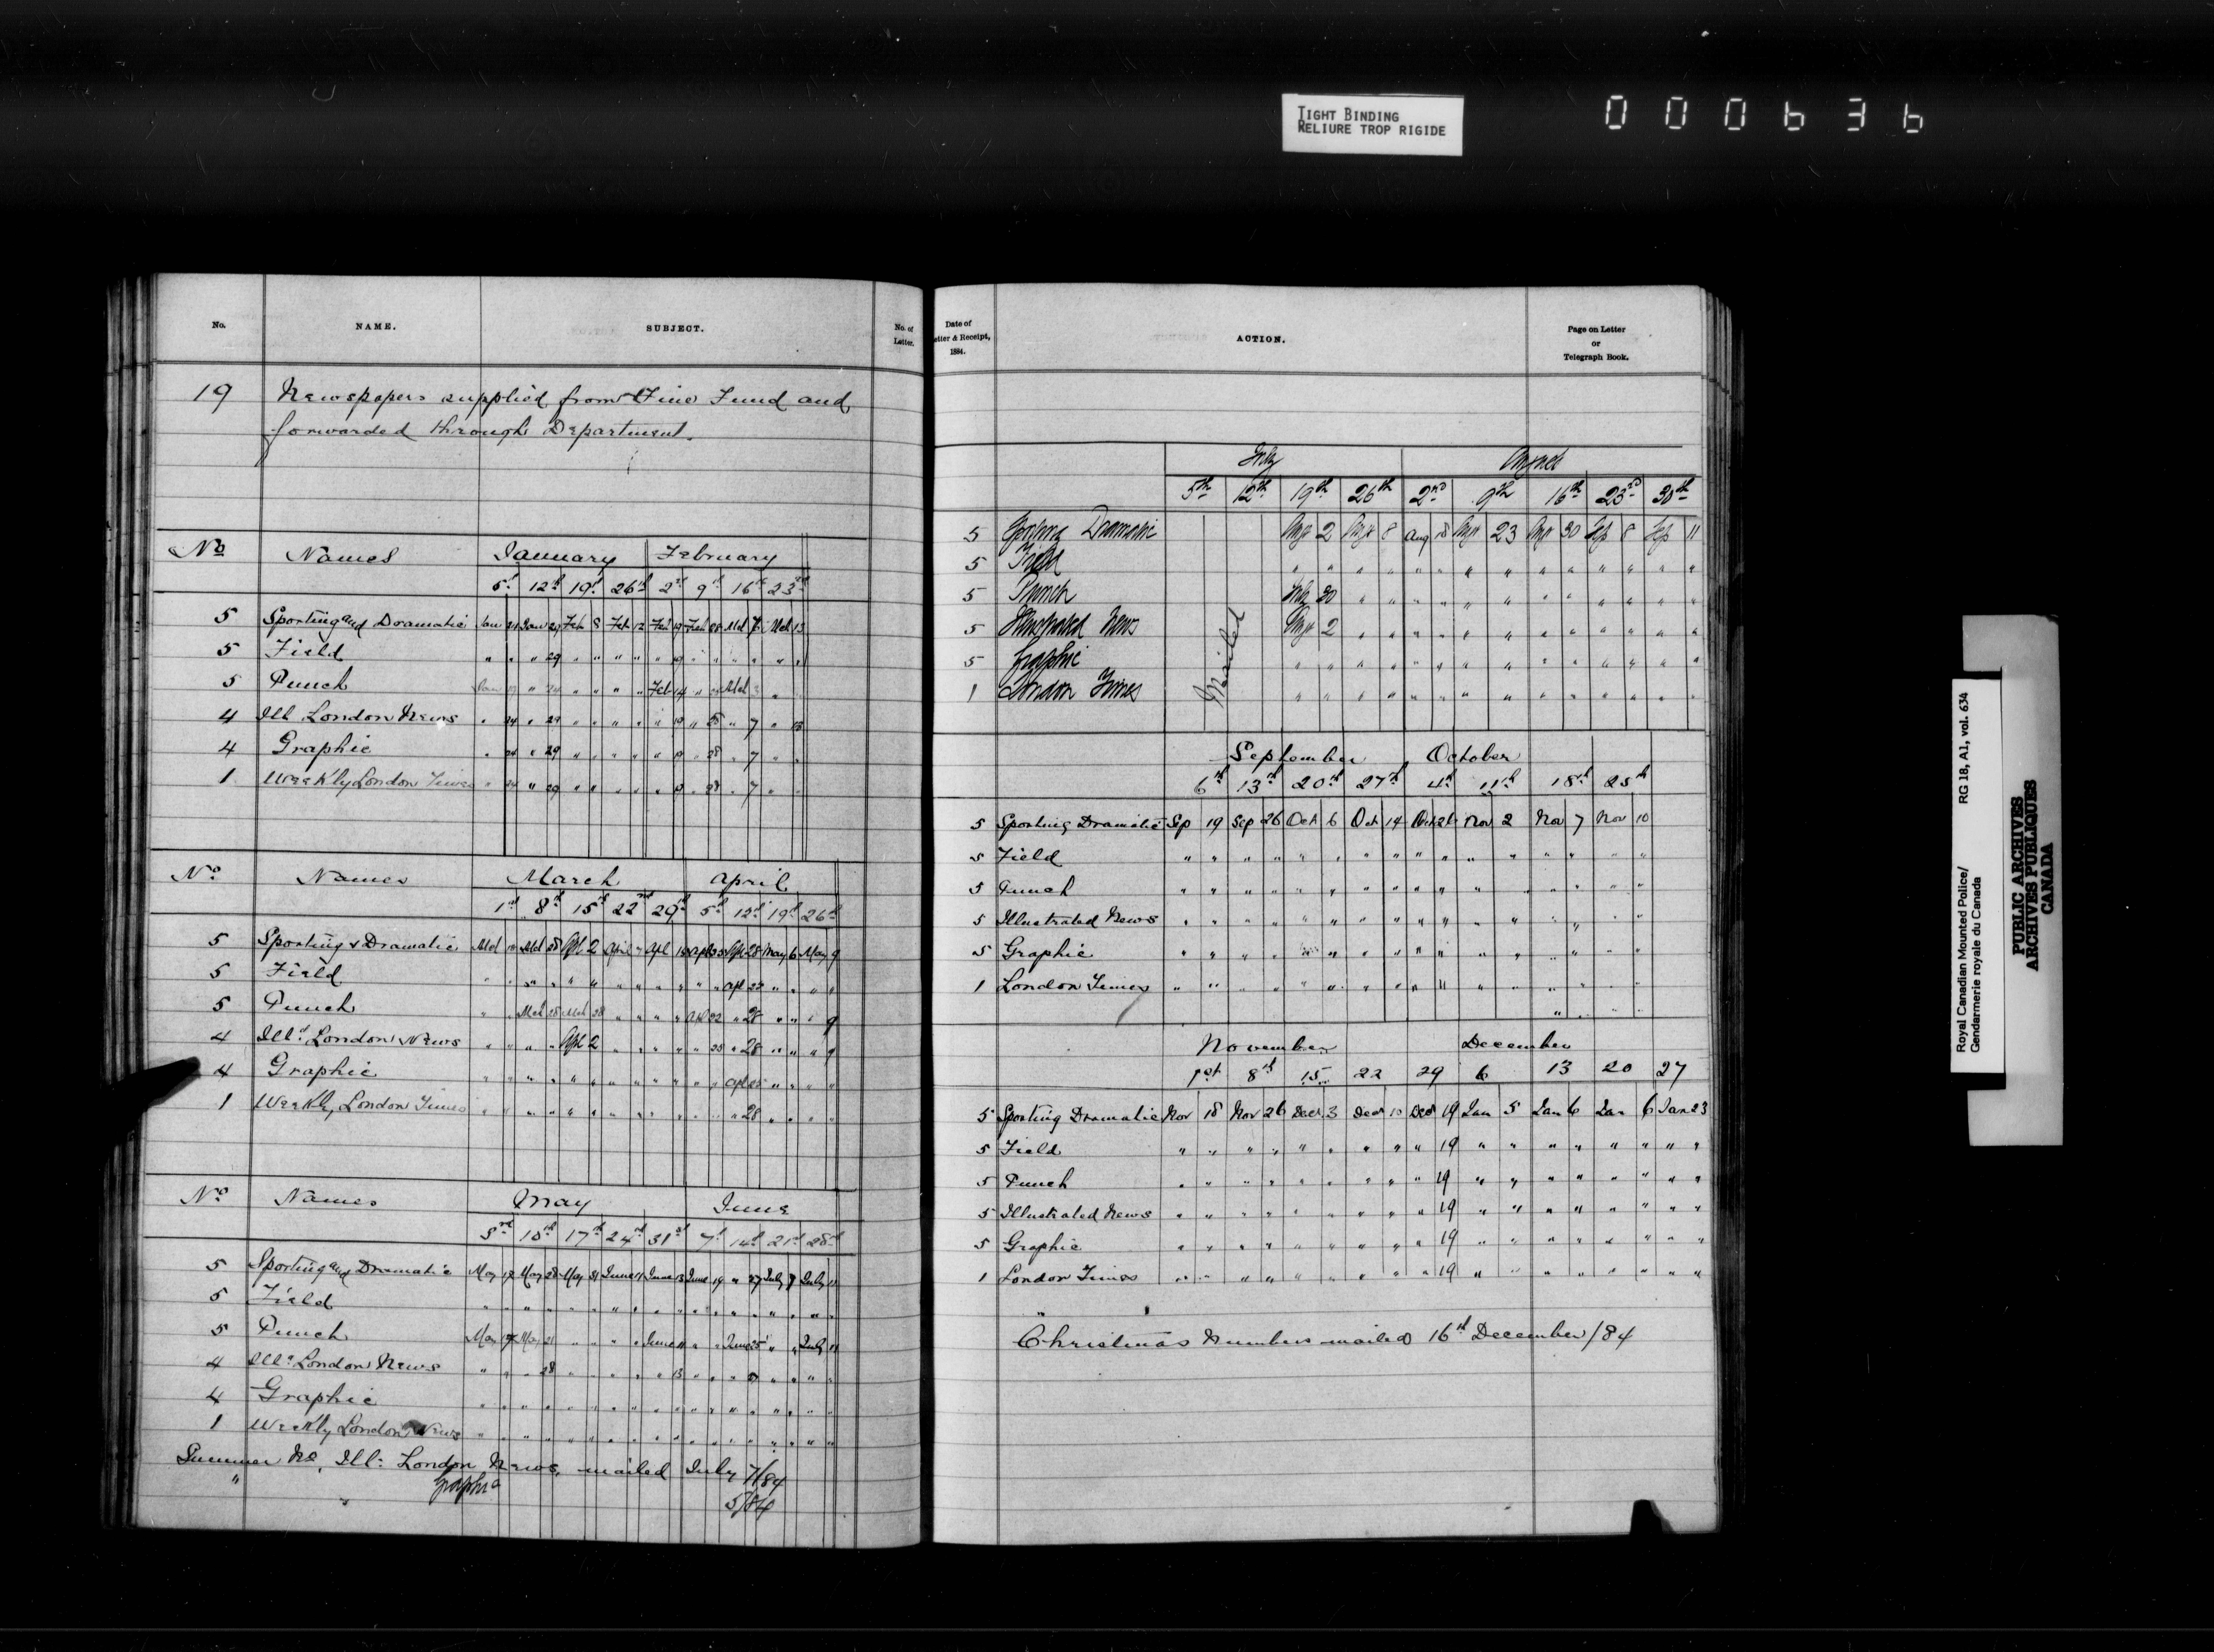 TIGHT BINDING
RELIURE TROP RIGIDE
000636
No. NAME. SUBJECT. No. of Letter.
19 Newspapers supplied from Fine Fund and
forwarded through Department.
No Names January February
5th 12th 19th 26th 2nd 9th 16th 23rd
5 Sporting and Dramatic Jan 24 Jan 29 Feb 8 Feb 12 Feb 19 Feb 28 Mch 7 Mch 13
5 Field " " " 29 " " " "
5 Punch
4 Ill London News " 24 " 29 " " " " " 19 " 28 " 7 " 13
4 Graphic " 24 " 29 " " " " " 19 " 28 " 7 " "
1 Weekly London Times " 24 " 29 " " " " " 19 " 28 " 7 " "
No Names March April
1st 8th 15th 22nd 29th 5th 12th 19th 26th
5 Sporting & Dramatic Mch Mch 28 Apl 2 April " Apl 28 May 6 May 9
5 Field
5 Punch
4 Illd London News
4 Graphic
1 Weekly London Times
No Names May June
3rd 10th 17th 24th 31st 7th 14th 21st 28th
5 Sporting and Dramatic May May 28 May 31 June 11 June 13 June 19 " 27 July 8 July 11
5 Field
5 Punch
4 Illd London News
4 Graphic
1 Weekly London News
Summer No. Ill: London News. mailed July 7/84
" Graphic 5/84
Date of
Letter & Receipt,
1884.
ACTION.
Page on Letter
or
Telegraph Book.
July August
5th 12th 19th 26th 2nd 9th 16th 23rd 30th
5 Sporting Dramatic Aug 2 Aug 8 Aug 18 Aug 23 Aug 30 Sep 8 Sep 11
5 Field " " " " " " " " " " " " " "
5 Punch July 30 " " " " " " " " " " " "
5 Illustrated News Aug 2 " " " " " " " " " " " "
5 Graphic " " " " " " " " " " " " " "
1 London Times " " " " " " " " " " " " " "
Mailed
September October
6th 13th 20th 27th 4th 11th 18th 25th
5 Sporting Dramatic Sep 19 Sep 26 Oct 6 Oct 14 Oct 26 Nov 2 Nov 7 Nov 10
5 Field " " " " " " " " " " " " " " " "
5 Punch " " " " " " " " " " " " " " " "
5 Illustrated News " " " " " " " " " " " " " " " "
5 Graphic " " " " " " " " " " " " " " " "
1 London Times " " " " " " " " " " " " " " " "
November December
1st 8th 15 22 29 6 13 20 27
5 Sporting Dramatic Nov 18 Nov 26 Dec 3 Dec 10 Dec 19 Jan 5 Jan 6 Jan 6 Jan 23
5 Field " " " " " " " " " 19 " " " " " " " "
5 Punch " " " " " " " " " 19 " " " " " " " "
5 Illustrated News " " " " " " " " " 19 " " " " " " " "
5 Graphic " " " " " " " " " 19 " " " " " " " "
1 London Times " " " " " " " " " 19 " " " " " " " "
Christmas Numbers mailed 16th December/84
Royal Canadian Mounted Police/ RG 18, A1, vol. 634
Gendarmerie royale du Canada
PUBLIC ARCHIVES
ARCHIVES PUBLIQUES
CANADA